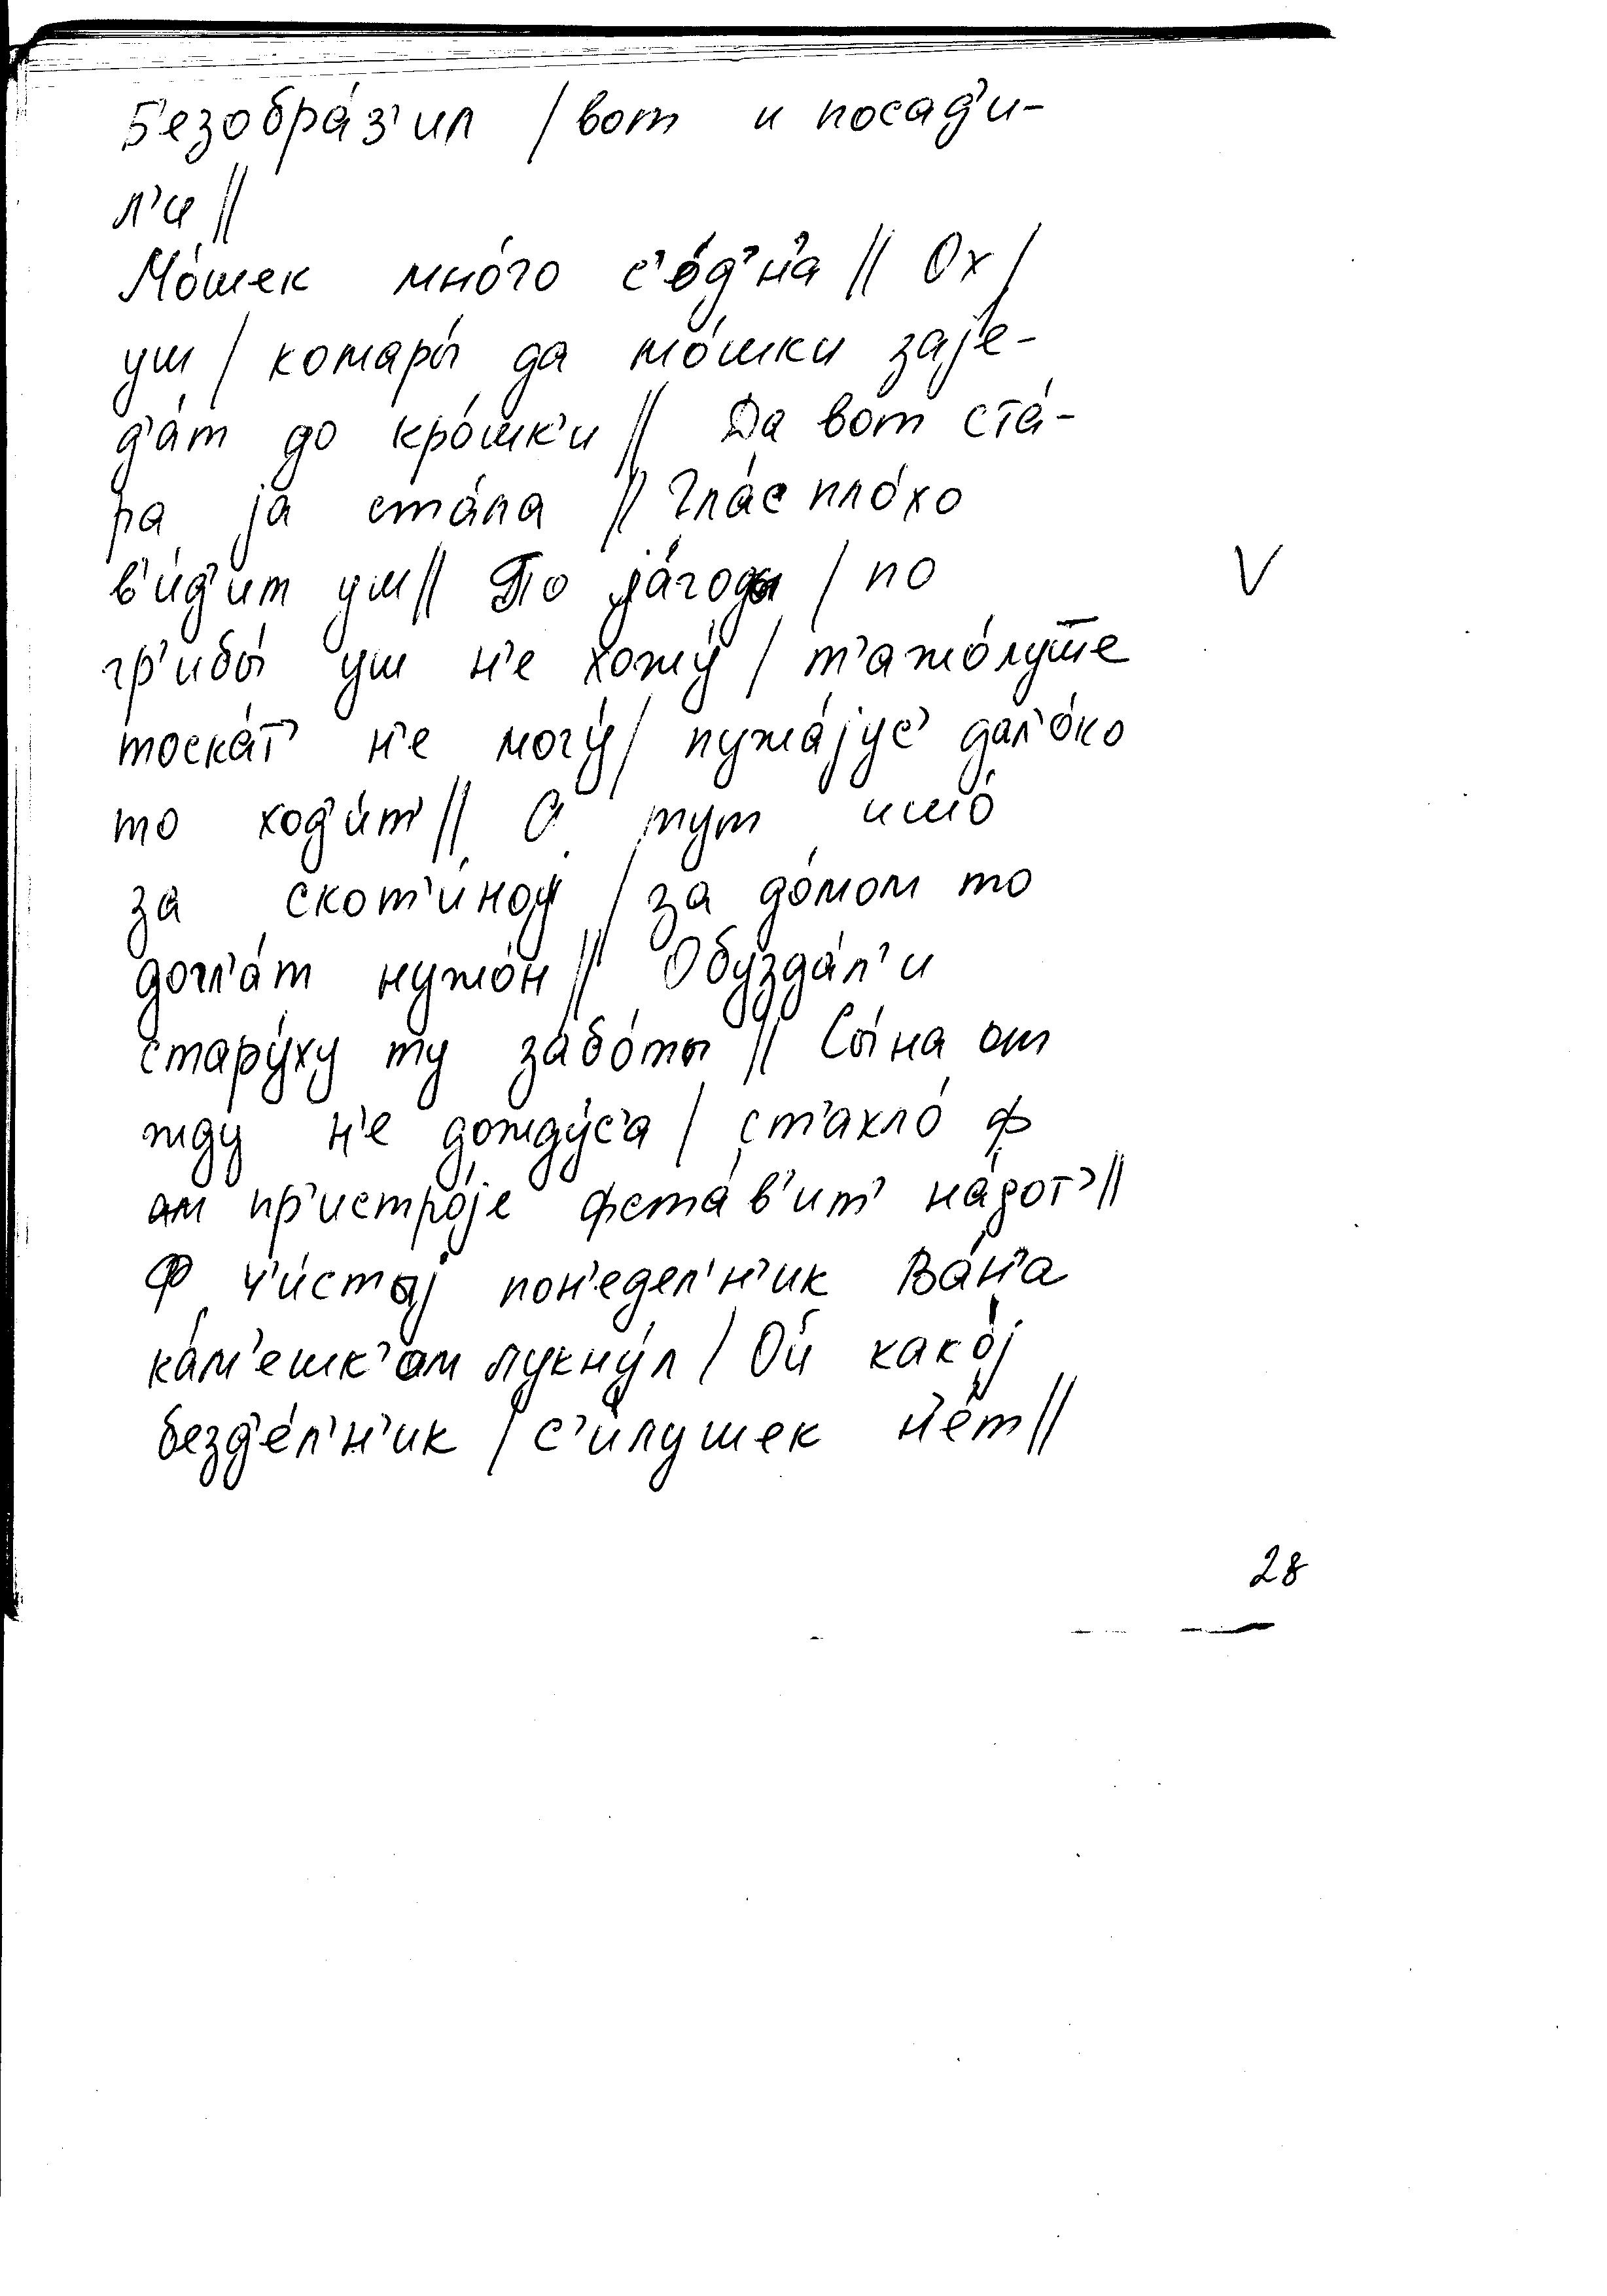 Б'езобра́з'ил / вот и посад'и-
л'и ||
Мо́шек мно́го с'о́д'н'а || Ох /
уш / комары́ да мо́шки зај'е-
д'а́т до кро́шк'и || Да вот ста́-
ра ја ста́ла || Глас пло́хо
в'и́д'ит уш || По ја́годы / по V
гр'ибы́ уш н'е хожу́ / т'ажо́луше
тоска́т' н'е могу́ / пужа́јус' дал'о́ко
то ход'и́т' || А тут ишо́
за скот'и́ној / за до́мом то
догл'а́т нужо́н || Обузда́л'и
стару́ху ту забо́ты || Сы́на от
жду н'е дожду́с'а / ст'акло́ ф
ам пр'истро́је фста́в'ит' на́дот' ||
Ф ч'и́стыј пон'едел'н'ик Ва́н'а
ка́м'ешк'ом лукну́л / Ой како́ј
безд'е́л'н'ик / с'и́лушек н'е́т ||
28